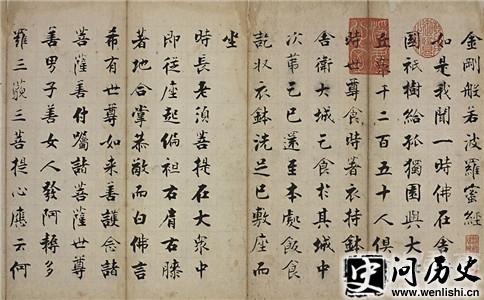 金剛般若波羅蜜經
如是我聞一時佛在舍
國祇樹給孤獨園與大
丘眾千二百五十人俱
時世尊食時著衣持鉢
舍衛大城乞食於其城中
次第乞已還至本處飯食
訖收衣鉢洗足已敷座而
坐
時長老須菩提在大眾中
即從座起偏袒右肩右膝
著地合掌恭敬而白佛言
希有世尊如來善護念諸
菩薩善付囑諸菩薩世尊
善男子善女人發阿耨多
羅三藐三菩提心應云何
史 问历史
www.wenlishi.cn